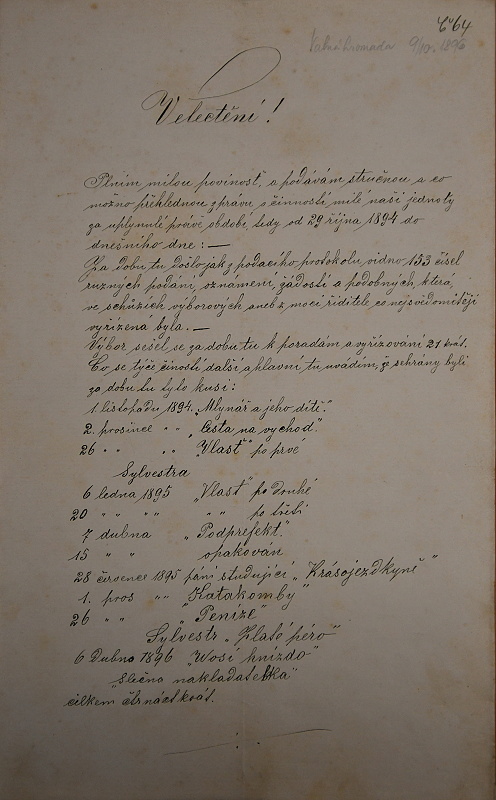 64
Valná hromada 9/10. 1896
Velectění!
Plním milou povinost, a podávám stručnou a co
možno přehlednou zprávu o činnosti milé naší jednoty
za uplynulé právě období, tedy od 29 října 1894 do
dnešního dne: —
Za dobu tu došlo jak z podacího protokolu vidno 133 čísel
ruzných podání, oznamení, žádostí a podobných, která,
ve schůzích výborových aneb z moci řiditele co nejsvědomitěji
vyřízená byla. —
Výbor sešel se za dobu tu k poradám a vyřizování 21 krát.
Co se týče činosti další a hlavní tu uvádím, že sehrány byli
za dobu tu tyto kusi:
1 listopadu 1894. „Mlynář a jeho dítě."
2. prosince " " „Cesta na vychod".
26 " " " " „Vlast" po prvé
Sylvestra
6 ledna 1895 „Vlast" po druhé
20 " " " " " " po třetí
7 dubna „Podprefekt".
15 " " opakován
28 července 1895 páni studující „Krásojezdkyně"
1. pros " " „Katakomby"
26 " " „Peníze"
Sylvestr „Zlaté péro"
6 Dubna 1896 „Wosí hnízdo"
„Slečna nakladatelka"
celkem čtrnáctkrát.